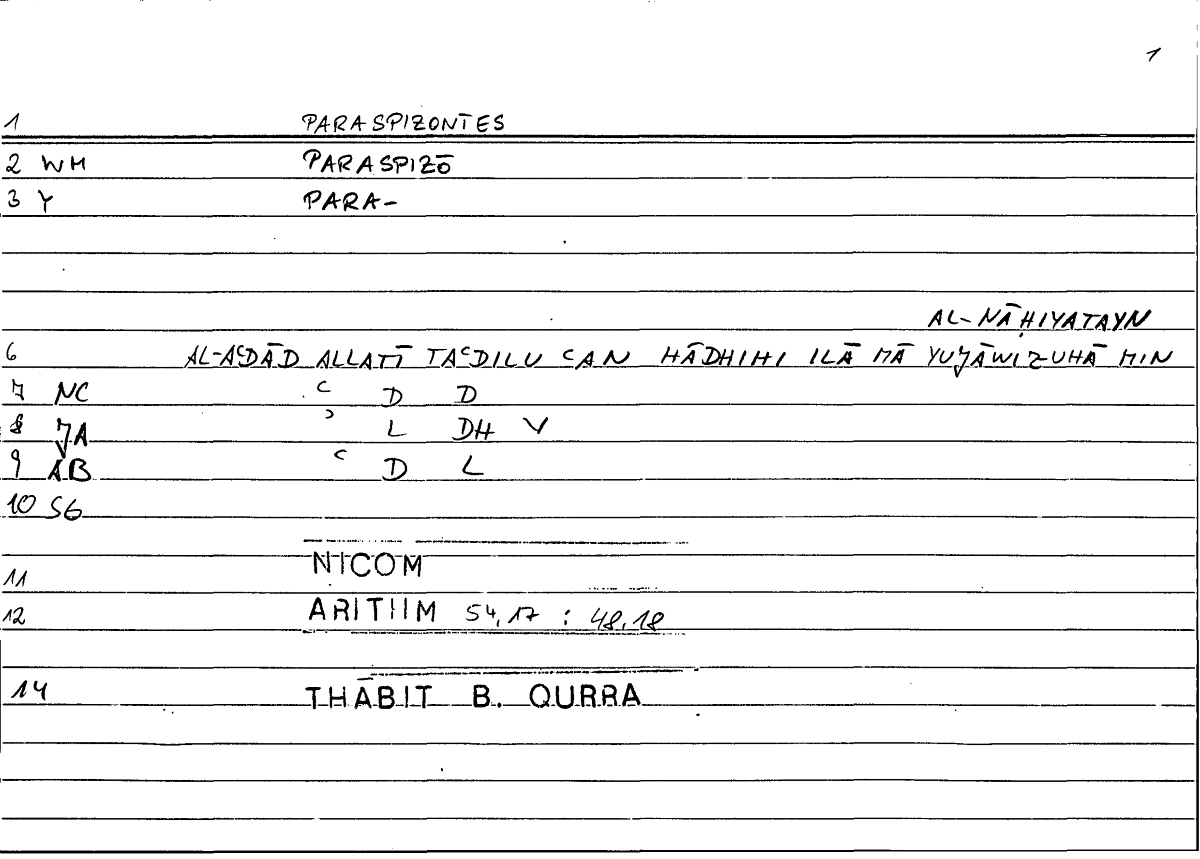 1
1 PARASPIZONTES
2 WM PARASPIZŌ
3 Y PARA-
AL-NĀḤIYATAYN
6 AL-AʿDĀD ALLATĪ TAʿDILU ʿAN HĀDHIHI ILĀ MĀ YUJĀWIZUHĀ MIN
7 NC ʿ D D
8 JA ʾ L DH V
9 AB ʿ D L
10 SG
11 NICOM
12 ARITHM 54,17 : 48,18
14 THĀBIT B. QURRA